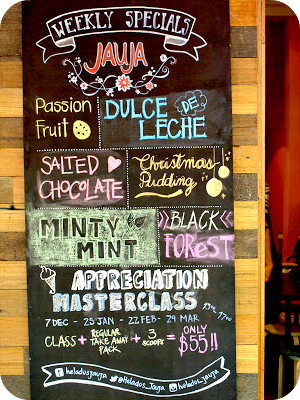 WEEKLY SPECIALS
JAUJA
Passion
Fruit
DULCE DE
LECHE
SALTED
CHOCOLATE
Christmas
Pudding
MINTY
MINT
BLACK
FOReST
APPRECIATION
MASTERCLASS
7 DEC - 25 JAN - 22 FEB - 29 MAR
CLASS + REGULAR TAKE AWAY PACK + 3 SCOOPS = ONLY $55!!
heladosjauja @Helados_Jauja helados_jauja